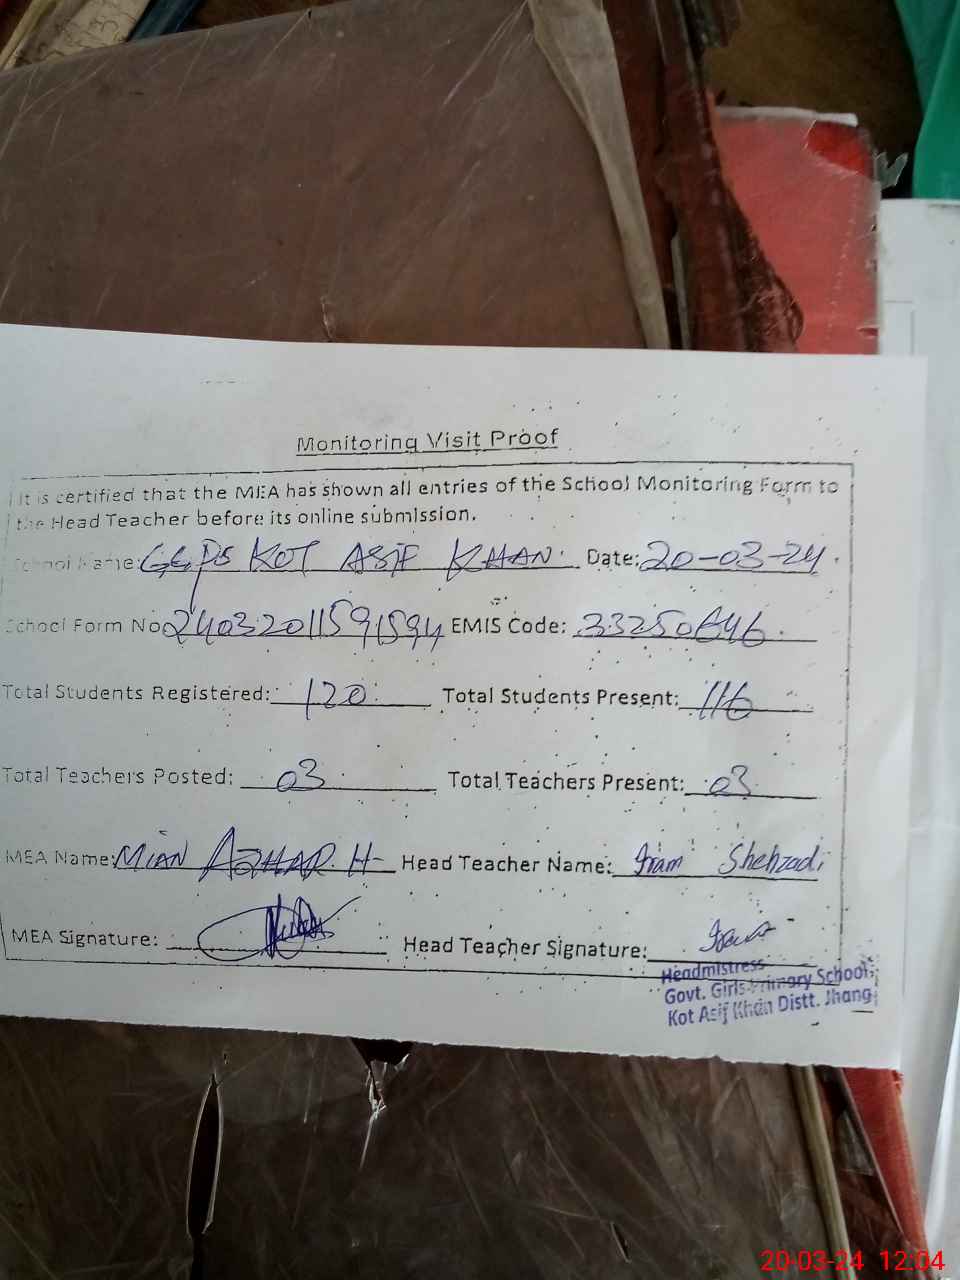 Monitoring Visit Proof
It is certified that the MEA has shown all entries of the School Monitoring Form to
the Head Teacher before its online submission.
School Name: GGPS KOT ASIF KHAN Date: 20-03-24
School Form No 24032011591594 EMIS Code: 33250646
Total Students Registered: 120 Total Students Present: 116
Total Teachers Posted: 03 Total Teachers Present: 03
MEA Name: MIAN AZHAR. H- Head Teacher Name: Iram Shehzadi
MEA Signature: Head Teacher Signature: Iram
Headmistress
Govt. Girls Primary School,
Kot Asif Khan Distt. Jhang
20-03-24 12:04